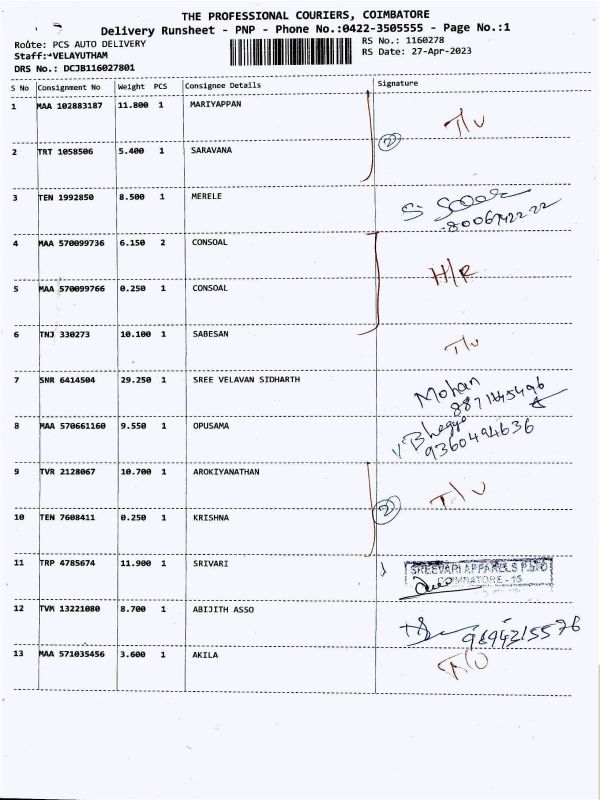 THE PROFESSIONAL COURIERS, COIMBATORE
Delivery Runsheet - PNP - Phone No.:0422-3505555 - Page No.:1
Route: PCS AUTO DELIVERY RS No.: 1160278
Staff:*VELAYUTHAM RS Date: 27-Apr-2023
DRS No.: DCJB116027801
S No Consignment No Weight PCS Consignee Details Signature
1 MAA 102883187 11.800 1 MARIYAPPAN T/U
2 TRT 1058506 5.400 1 SARAVANA
2
3 TEN 1992850 8.500 1 MERELE
4 MAA 570099736 6.150 2 CONSOAL H/R
5 MAA 570099766 0.250 1 CONSOAL
6 TNJ 330273 10.100 1 SABESAN T/U
7 SNR 6414504 29.250 1 SREE VELAVAN SIDHARTH Mohan
8 MAA 570661160 9.550 1 OPUSAMA
9360494636
9 TVR 2128067 10.700 1 AROKIYANATHAN T/U
2
10 TEN 7608411 0.250 1 KRISHNA
11 TRP 4785674 11.900 1 SRIVARI
SREEVARI APPARELS P LTD
COIMBATORE - 15
12 TVM 13221080 8.700 1 ABIJITH ASSO
9894215576
13 MAA 571035456 3.600 1 AKILA T/U